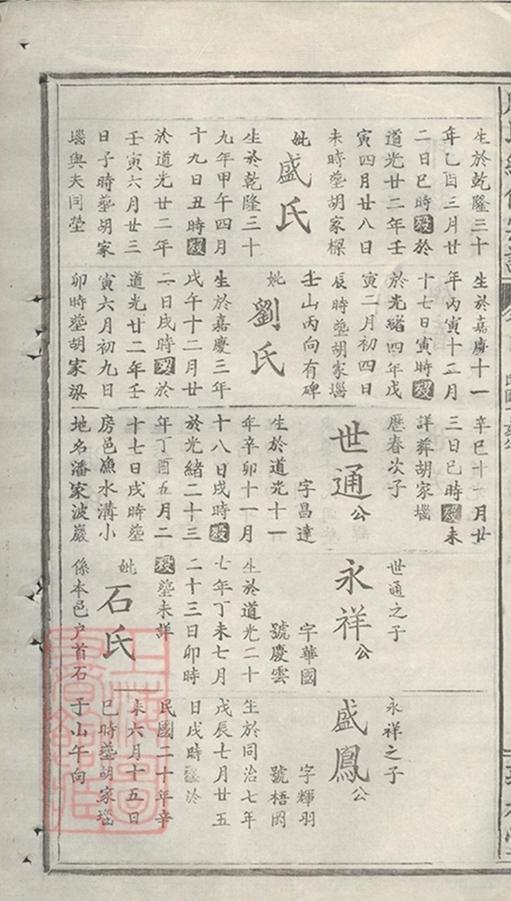 生於乾隆三十
年乙酉三月廿
二日巳時歿於
道光廿二年壬
寅四月廿八日
未時塟胡家樑
妣盛氏
生於乾隆三十
九年甲午四月
十九日丑時歿
於道光廿二年
壬寅六月廿三
日子時塟胡家
堖與夫同塋
生於嘉慶十一
年丙寅十二月
十七日寅時歿
於光緒四年戊
寅二月初四日
辰時塟胡家堖
壬山丙向有碑
妣劉氏
生於嘉慶三年
戊午十二月廿
二日戌時歿於
道光廿二年壬
寅六月初九日
卯時塟胡家梁
辛巳十一月廿
三日巳時歿未
詳葬胡家堖
歷春次子
世通公
字昌達
生於道光十一
年辛卯十一月
十八日戌時歿
於光緒二十三
年丁酉五月二
十七日戌時塟
房邑漁水溝小
地名潘家波巖
世通之子
永祥公
字華國
號慶雲
生於道光二十
七年丁未七月
二十三日卯時
歿塟未詳
妣石氏
係本邑户首石
永祥之子
盛鳳公
字輝羽
號梧岡
生於同治七年
戊辰七月廿五
日戌時歿於
民國二十年辛
未六月十五日
巳時塟胡家堖
子山午向
上海圖書館藏